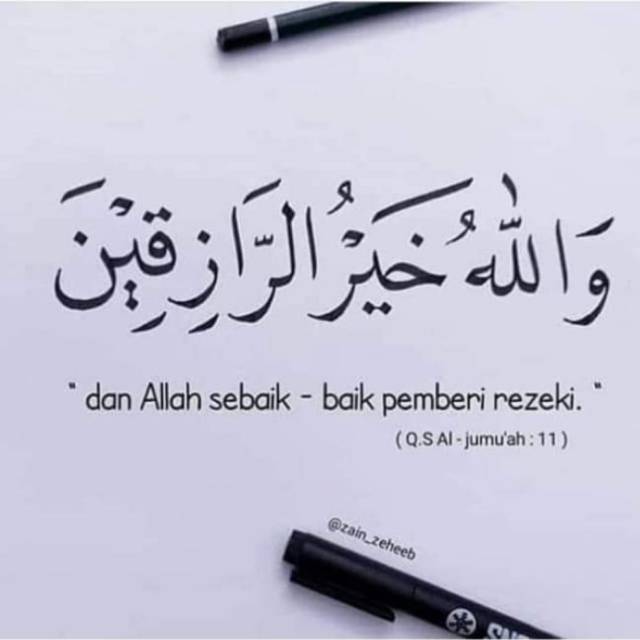 وَاللّٰهُ خَيْرُ الرَّازِقِيْنَ
" dan Allah sebaik - baik pemberi rezeki. "
( Q.S Al - jumu'ah : 11 )
@zain_zeheeb